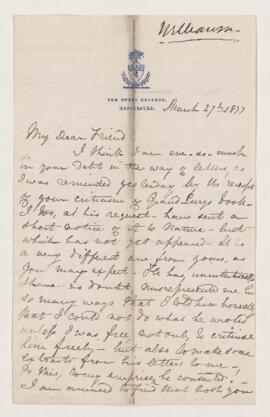 Williamson
THE OWENS COLLEGE,
MANCHESTER.
March 27th 1877
My Dear Friend
I think I am ever so much
in your debt in the way of letters as
I was reminded yesterday by the receipt
of your criticism of Grand'Eurys book.
I too, at his request, have sent a
short notice of it to Nature - but
which has not yet appeared. It is
a very different one from yours, as
you may expect. He has, unintentionally
I have no doubt, misrepresented me in
so many ways that I told him honestly
that I could not do what he wanted
unless I was free not only to criticise
him freely - but also to make some
extracts from his letters to me!
To this, to my surprise, he consented!
I am amused to find that both you